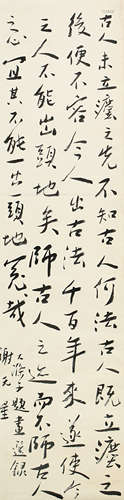 古人未立灋之先不知古人何法古人既立灋之
後便不容今人出古法千百年來遂使今
之人不能出頭地矣師古人之迹而不師古人
之心宜其不能一出頭地冤哉
大滌子題畫選錄
謝无量